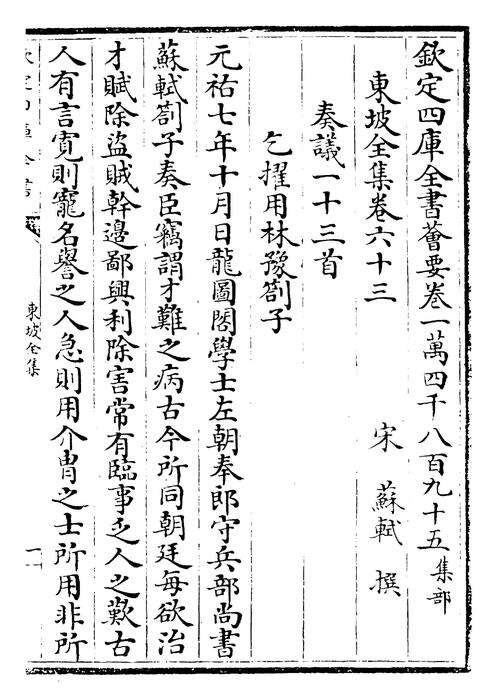 欽定四庫全書薈要卷一萬四千八百九十五集部
東坡全集卷六十三
宋 蘇軾 撰
奏議一十三首
乞擢用林豫劄子
元祐七年十月日龍圖閣學士左朝奉郎守兵部尚書
蘇軾劄子奏臣竊謂才難之病古今所同朝廷每欲治
才賦除盜賊幹邊鄙興利除害常有臨事乏人之歎古
人有言寛則寵名譽之人急則用介胄之士所用非所
東坡全集
一